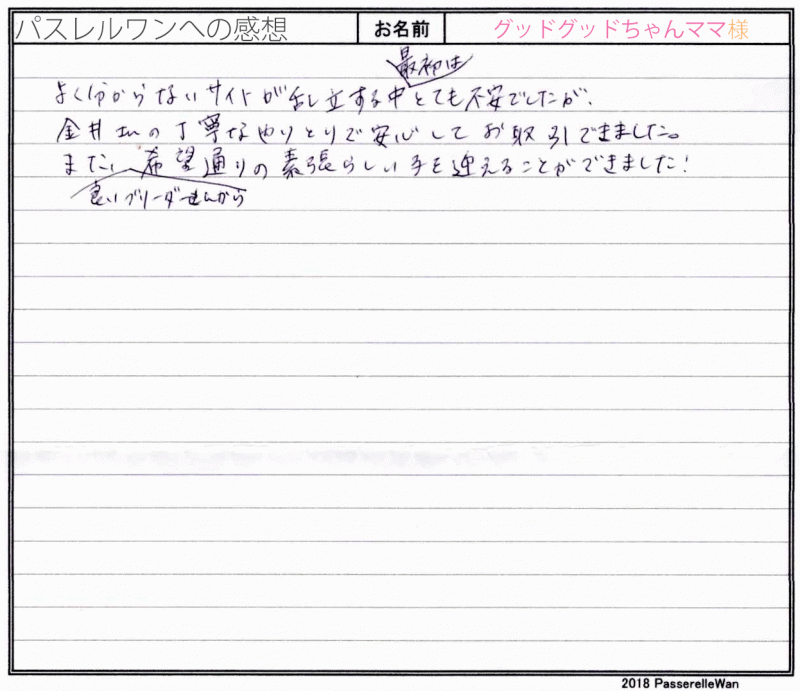 パスレルワンへの感想 お名前 グッドグッドちゃんママ様
最初は
よく分からないサイトが乱立する中とても不安でしたが、
金井さんの丁寧なやりとりで安心してお取引できました。
また、希望通りの素張らしい子を迎えることができました!
良いブリーダーさんから
2018 PasserelleWan